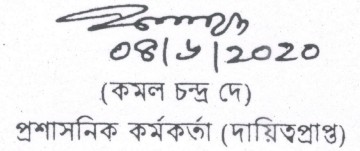 ০৪/৬/২০২০
(কমল চন্দ্র দে)
প্রশাসনিক কর্মকর্তা (দায়িত্বপ্রাপ্ত)